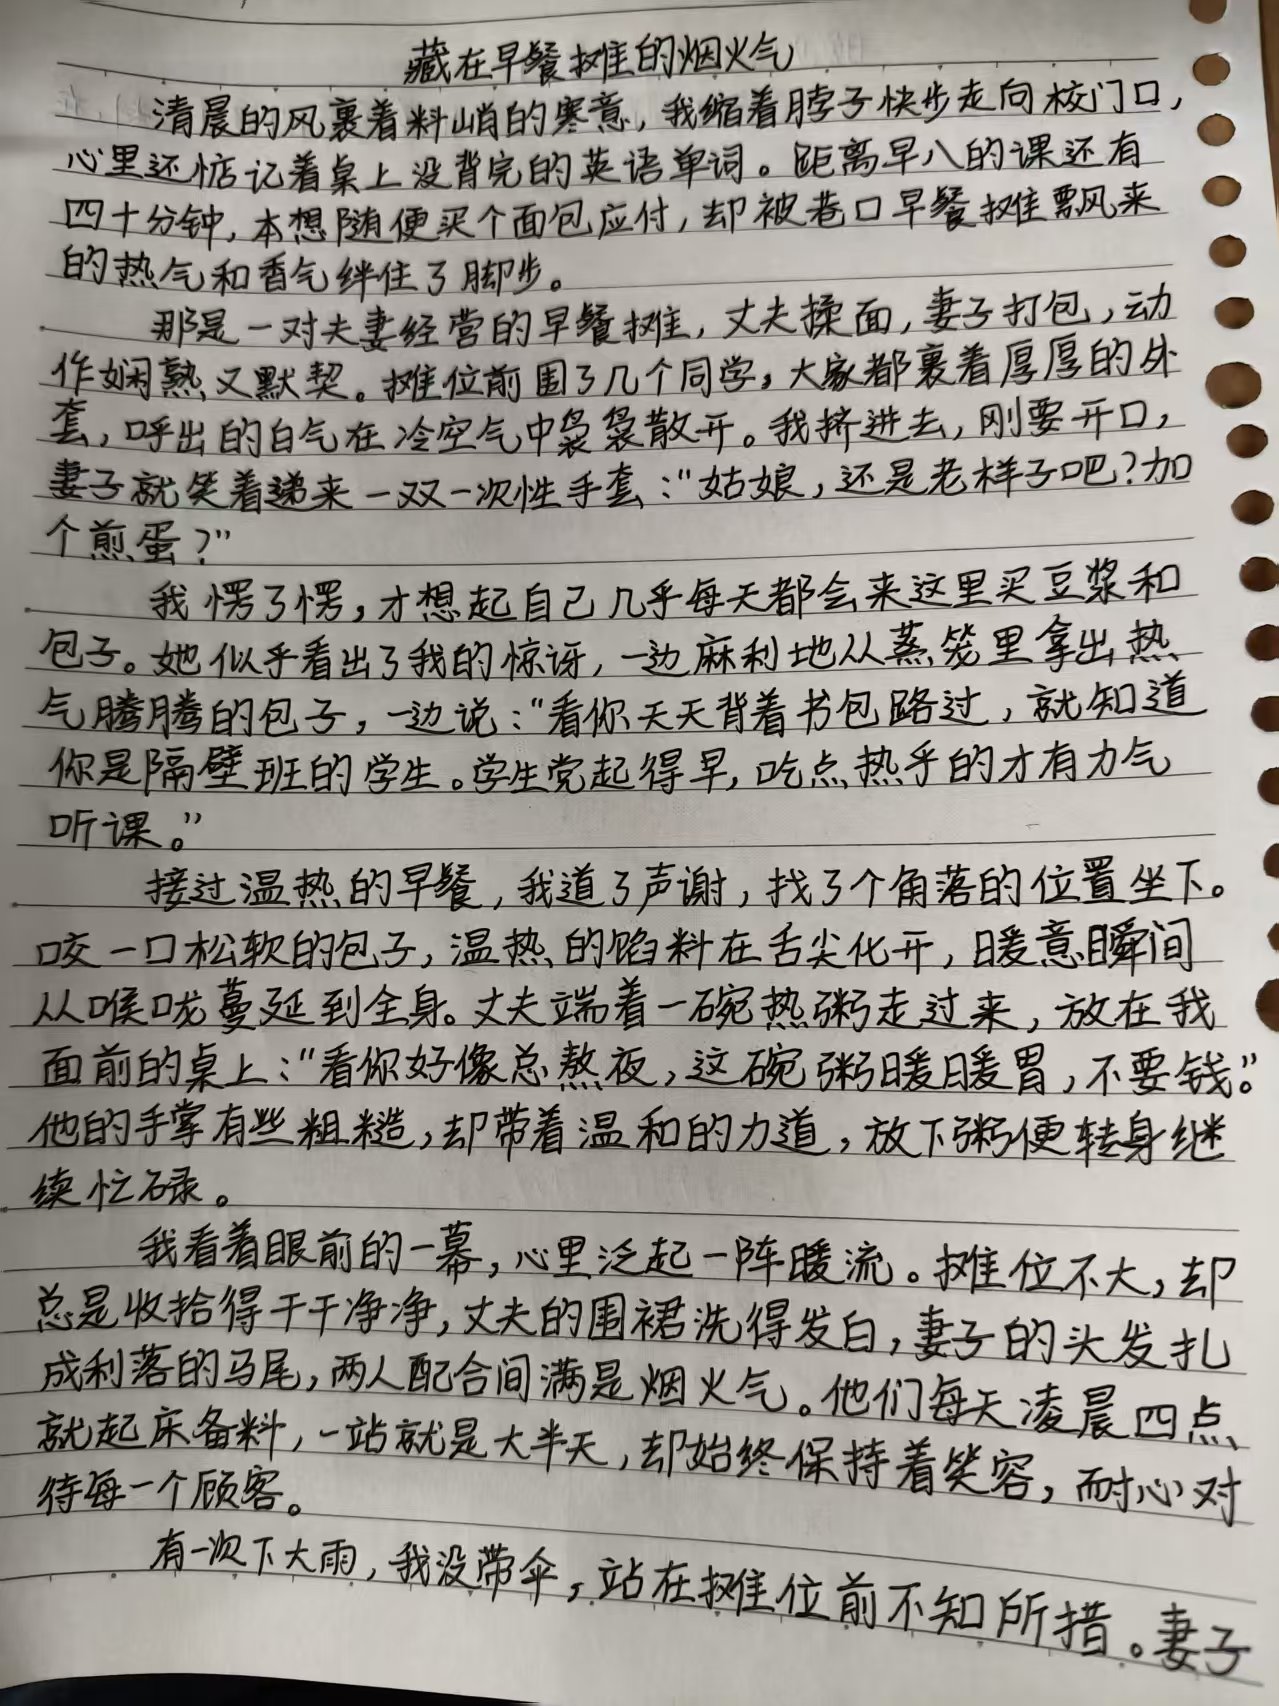 藏在早餐摊的烟火气
清晨的风裹着料峭的寒意,我缩着脖子快步走向校门口,
心里还惦记着桌上没背完的英语单词。距离早八的课还有
四十分钟,本想随便买个面包应付,却被巷口早餐摊飘来
的热气和香气绊住了脚步。
那是一对夫妻经营的早餐摊,丈夫揉面,妻子打包,动
作娴熟又默契。摊位前围了几个同学,大家都裹着厚厚的外
套,呼出的白气在冷空气中袅袅散开。我挤进去,刚要开口,
妻子就笑着递来一双一次性手套:“姑娘,还是老样子吧?加
个煎蛋?”
我愣了愣,才想起自己几乎每天都会来这里买豆浆和
包子。她似乎看出了我的惊讶,一边麻利地从蒸笼里拿出热
气腾腾的包子,一边说:“看你天天背着书包路过,就知道
你是隔壁班的学生。学生党起得早,吃点热乎的才有力气
听课。”
接过温热的早餐,我道了声谢,找了个角落的位置坐下。
咬一口松软的包子,温热的馅料在舌尖化开,暖意瞬间
从喉咙蔓延到全身。丈夫端着一碗热粥走过来,放在我
面前的桌上:“看你好像总熬夜,这碗粥暖暖胃,不要钱。”
他的手掌有些粗糙,却带着温和的力道,放下粥便转身继
续忙碌。
我看着眼前的一幕,心里泛起一阵暖流。摊位不大,却
总是收拾得干干净净,丈夫的围裙洗得发白,妻子的头发扎
成利落的马尾,两人配合间满是烟火气。他们每天凌晨四点
就起床备料,一站就是大半天,却始终保持着笑容,耐心对
待每一个顾客。
有一次下大雨,我没带伞,站在摊位前不知所措。妻子